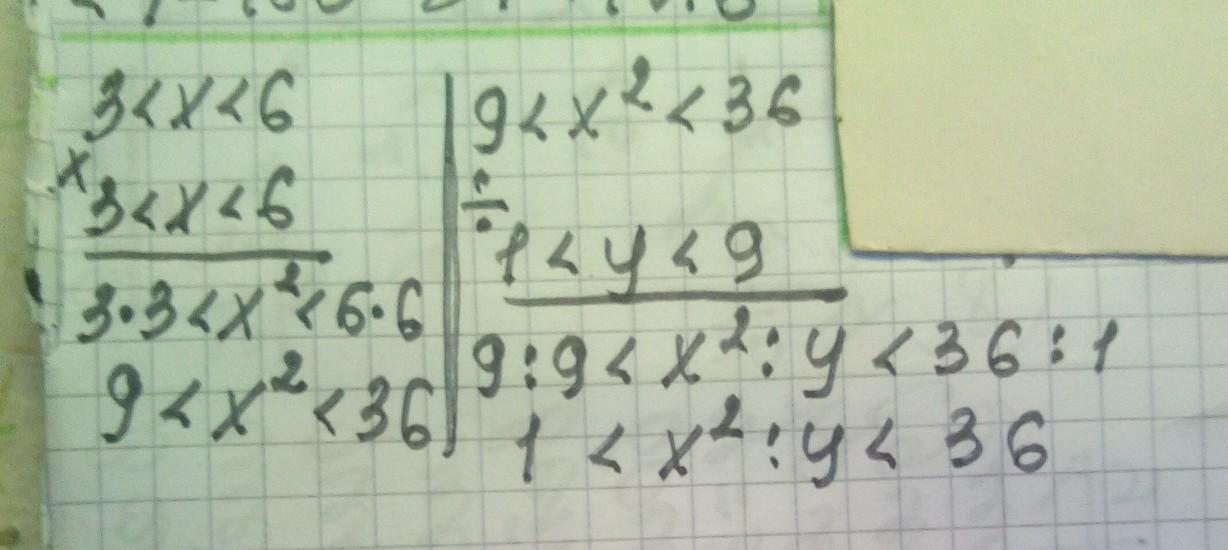 3 < x < 6
x
3 < x < 6
3·3 < x² < 6·6
9 < x² < 36
9 < x² < 36
÷
1 < y < 9
9:9 < x²:y < 36:1
1 < x²:y < 36